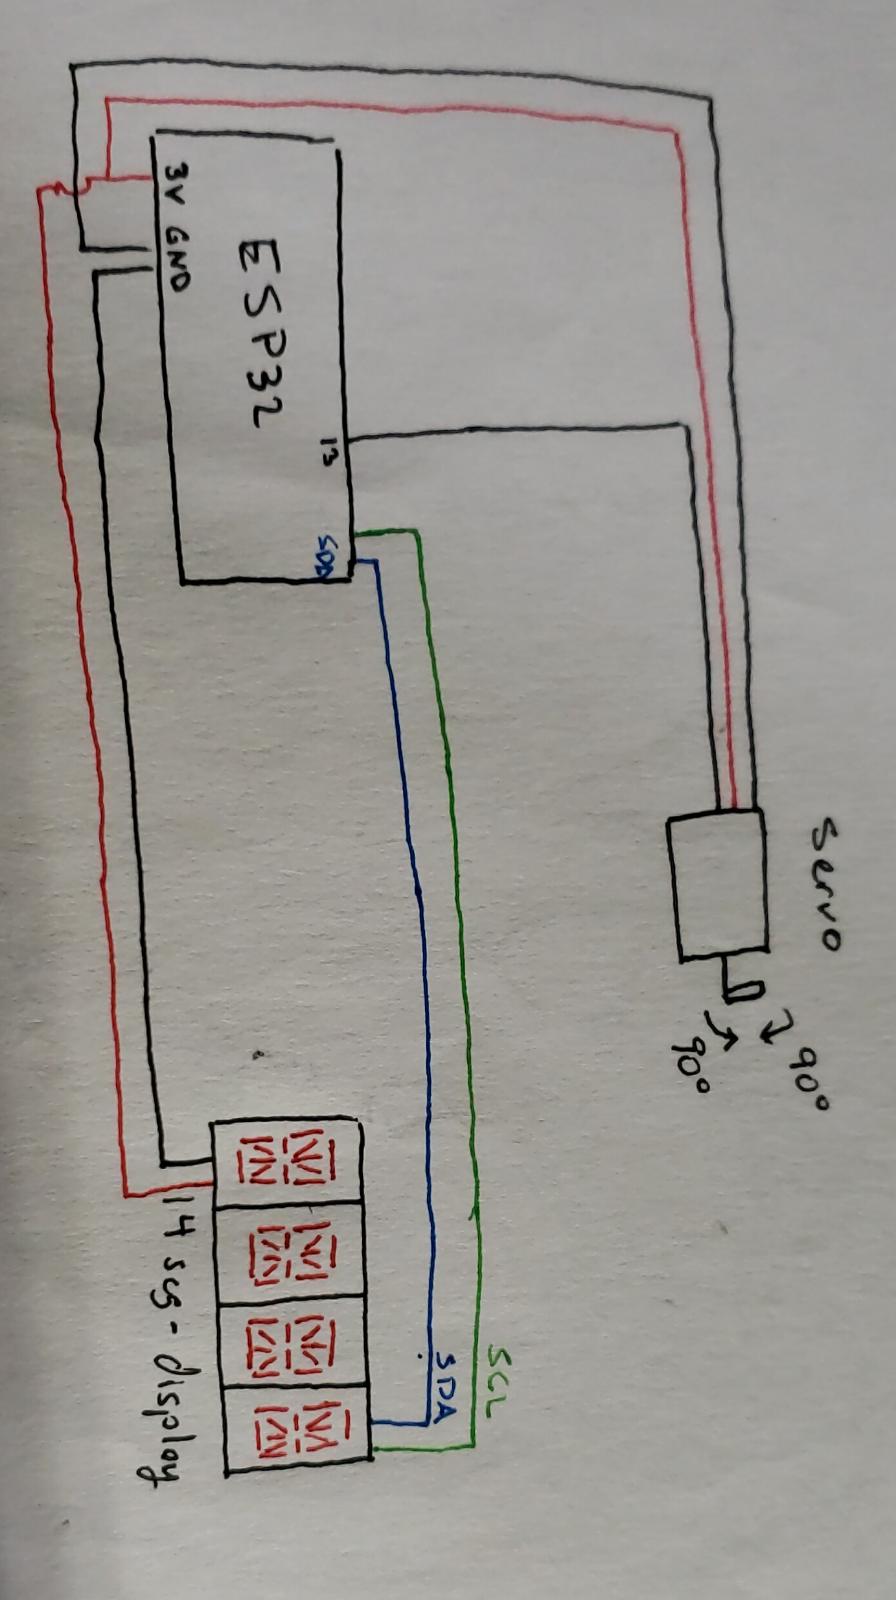 Servo
90°
90°
SCL
SDA
13
SDA
ESP32
3V GND
14 seg - display